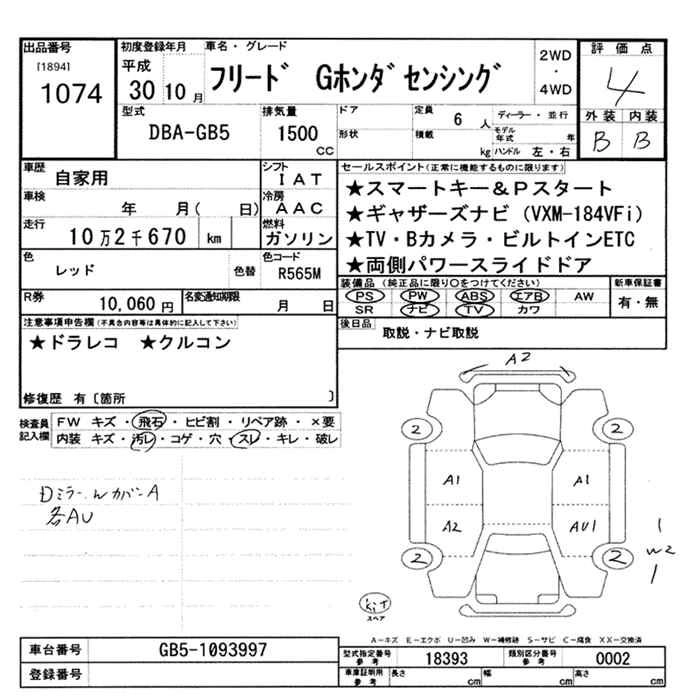 出品番号
[1894]
1074
初度登録年月
平成
30 10 月
車名・グレード
フリード Gホンダセンシング
2WD
・
4WD
評価点
4
外装 内装
B B
型式
DBA-GB5
排気量
1500
CC
ドア
形状
定員 6 人
積載 kg
ディーラー・並行
モデル年式 年
ハンドル 左・右
車歴
自家用
シフト
IAT
車検
年 月( 日)
冷房
AAC
走行
10万2千670 km
燃料
ガソリン
色
レッド
色替
色コード
R565M
R券
10,060 円
名変通知期限
月 日
セールスポイント(正常に機能するものに限ります)
★スマートキー&Pスタート
★ギャザーズナビ(VXM-184VFi)
★TV・Bカメラ・ビルトインETC
★両側パワースライドドア
装備品(純正品に限り○をつけてください)
PS PW ABS エアB AW
SR ナビ TV カワ
新車保証書
有・無
後日品
取説・ナビ取説
注意事項申告欄(不具合内容等は具体的に記入して下さい)
★ドラレコ ★クルコン
修復歴 有〔箇所 〕
検査員記入欄
FW キズ・飛石・ヒビ割・リペア跡・×要
内装 キズ・汚レ・コゲ・穴・スレ・キレ・破レ
Dミラーwカバー A
各AU
A2
2 2
A1 A1
A2 AU1
2 2
W2
kiT
スペア
A-キズ E-エクボ U-凹み W-補修跡 S-サビ C-腐食 XX-交換済
車台番号
GB5-1093997
登録番号
型式指定番号
参考
18393
類別区分番号
参考
0002
車庫証明用
参考
長さ cm
幅 cm
高さ cm